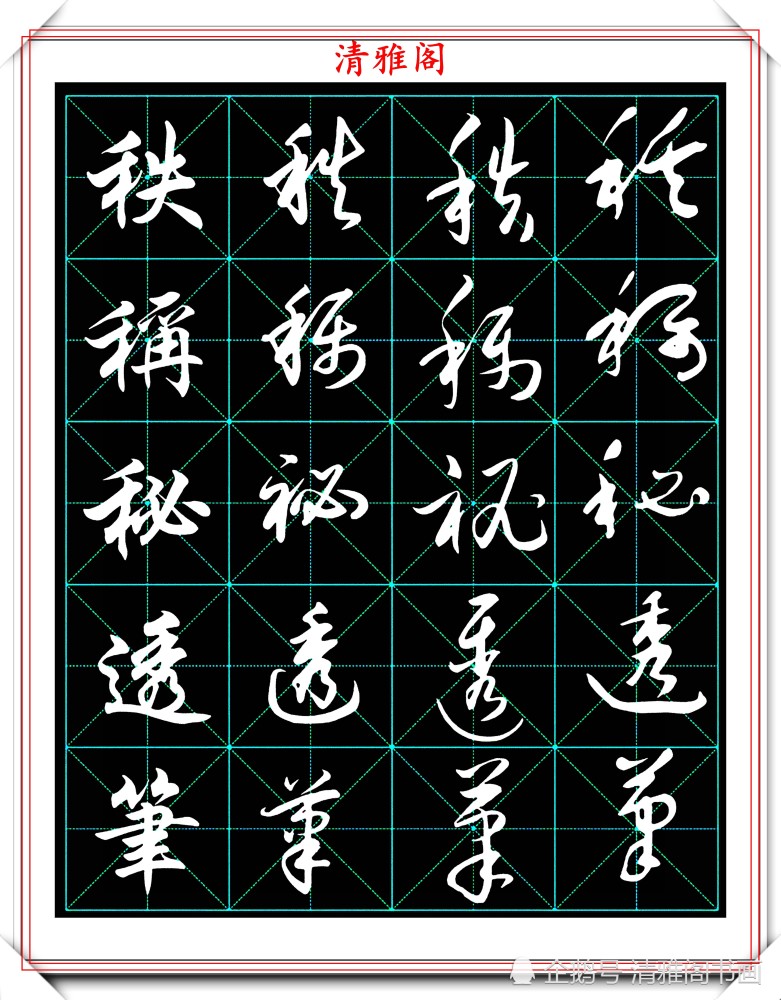 清雅阁
秩秩秩秩
稱稱稱稱
秘秘秘秘
透透透透
筆筆筆筆
企鹅号 清雅阁书画